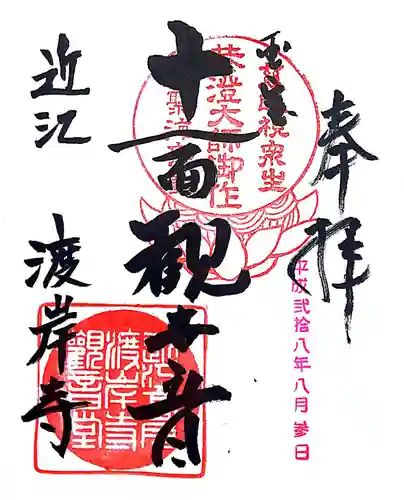 奉拝
平成弐拾八年八月参日
国宝
十一面観世音
近江 渡岸寺
眼視衆生
泰澄大師御作
聚海
渡岸寺
觀音堂